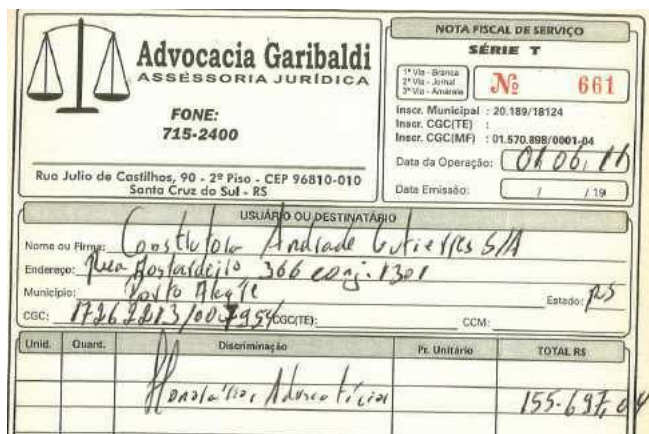 Advocacia Garibaldi
ASSESSORIA JURÍDICA
FONE:
715-2400
Rua Julio de Castilhos, 90 - 2º Piso - CEP 96810-010
Santa Cruz do Sul - RS
NOTA FISCAL DE SERVIÇO
SÉRIE T
1ª Via - Branca
2ª Via - Jornal
3ª Via - Amarela
Nº 661
Inscr. Municipal : 20.189/18124
Inscr. CGC(TE) :
Inscr. CGC(MF) : 01.570.898/0001-04
Data da Operação:
Data Emissão: / / 19
USUÁRIO OU DESTINATÁRIO
Nome ou Firma: Construtora Andrade Gutierres S/A
Endereço: Rua Mostardeiro 366 conj. 1301
Município: Porto Alegre Estado: RS
CGC: CGC(TE): CCM:
Unid. Quant. Discriminação Pr. Unitário TOTAL R$
Honorários Advocatícios 155.697,04